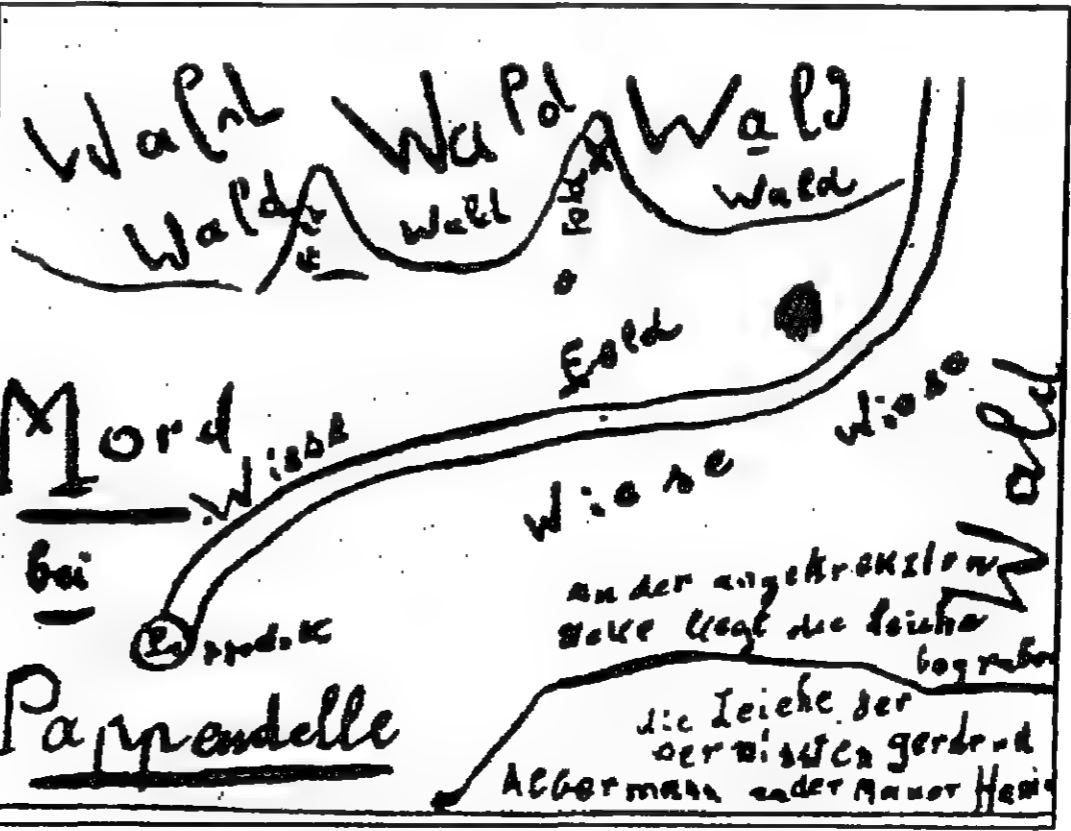 Wald Wald Wald
Wald Wald Wald
Feld
Feld
Mord
Wiese
Wiese
Wiese
Wald
bei
Pappendelle
an der angekreuzten
stelle liegt die Leiche
begraben
die Leiche der
vermissten gerdrud
Albermann an der Mauer Hani